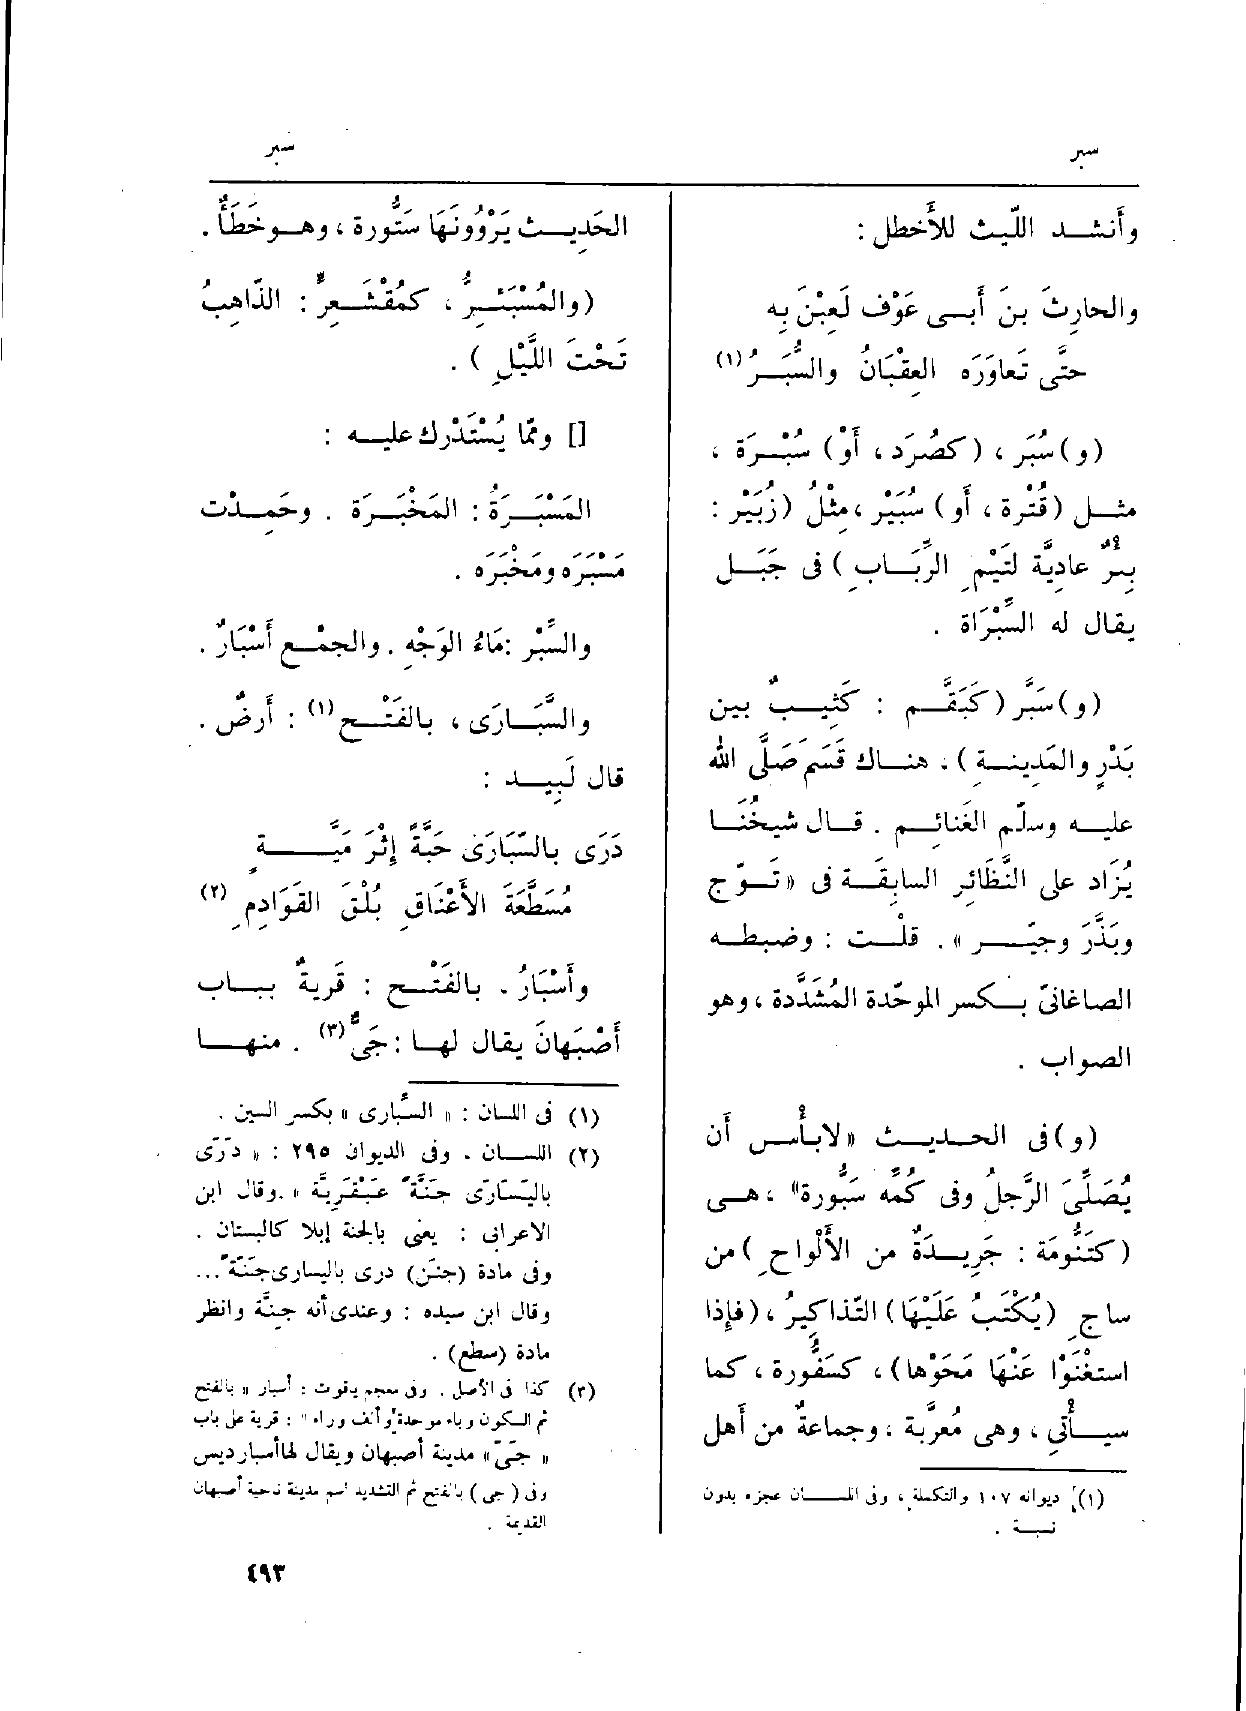 سبر
سبر
وأنشد اللّيث للأَخطل :
والحارِثَ بنَ أَبى عَوْف لَعِبْنَ بِه
حتَّى تَعاوَرَه العِقْبَانُ والسُّبَرُ (١)
(و) سُبَر ، (كصُرَد ، أَوْ) سُبْرَة ،
مثل (قُتْرة ، أَو) سُبَيْر ، مثْلُ (زُبَيْر :
بِئرٌ عادِيَّة لتَيْمِ الرِّبَاب) فى جَبَل
يقال له السِّبْرَاة .
(و) سَبَّر (كَبَقَّم : كَثِيبٌ بين
بَدْرٍ والمَدِينة) ، هناك قَسَمَ صَلَّى الله
عليه وسلّم الغَنائِم . قال شيخُنَا
يُزَاد على النَّظائِر السابقة فى « تَوّج
وبَذَّرَ وجَيَّر » . قلْت : وضبطه
الصاغانىّ بكسر الموحّدة المُشَدَّدة ، وهو
الصواب .
(و) فى الحديث « لابأْس أَن
يُصَلِّىَ الرَّجلُ وفى كُمِّه سَبُّورة» ، هى
(كتَنُّومَة : جَرِيدَةٌ من الأَلْواحِ) من
ساجٍ (يُكْتَبُ عَلَيْهَا) التَّذاكِيرُ ، (فإِذا
استغْنَوْا عَنْهَا مَحَوْها) ، كسَفُّورة ، كما
سيأْتِى ، وهى مُعرَّبة ، وجماعةٌ من أَهل
(١) ديوانه ١٠٧ والتكملة ، وفى اللسان عجزه بدون
نسبة .
الحَدِيث يَرْوُونَهَا سَتُّورة ، وهو خَطَأٌ .
(والمُسْبَئِرُّ ، كمُقْشَعِرٍّ : الذَّاهِبُ
تَحْتَ اللَّيْلِ) .
[] وممّا يُسْتَدْرك عليه :
المَسْبَرَةُ : المَخْبَرَة . وحَمِدْت
مَسْبَرَه ومَخْبَرَه .
والسِّبْر : مَاءُ الوَجْهِ . والجمْع أَسْبَارٌ .
والسَّبَارَى ، بالفَتْح (١) : أَرضٌ .
قال لَبِيد :
دَرَى بالسَّبَارَى حَبَّةً إِثْرَ مَيَّةٍ
مُسَطَّعَةَ الأَعْنَاقِ بُلْقَ القَوَادِمِ (٢)
وأَسْبَارُ . بالفَتْح : قَريةٌ بباب
أَصْبَهانَ يقال لها : جَىٌّ (٣) . منها
(١) فى اللسان : « السُّبارى » بكسر السين .
(٢) اللسان . وفى الديوان ٢٩٥ : « دَرَى
باليَسَارَى جنَّةً عبْقَريَّة » . وقال ابن
الاعرابى : يعنى بالجنة إبلا كالبستان .
وفى مادة (جنن) درى باليسارى جَنَّة ...
وقال ابن سيده : وعندى أنه جنَّة وانظر
مادة (سطع) .
(٣) كذا فى الأصل . وفى معجم ياقوت : أسبار « بالفتح
ثم السكون وباء موحدة وألف وراء » : قرية على باب
« جَىّ » مدينة أصبهان ويقال لها أسبارديس
وفى (جى) بالفتح ثم التشديد اسم مدينة ناحية أصبهان
القديمة .
٤٩٣